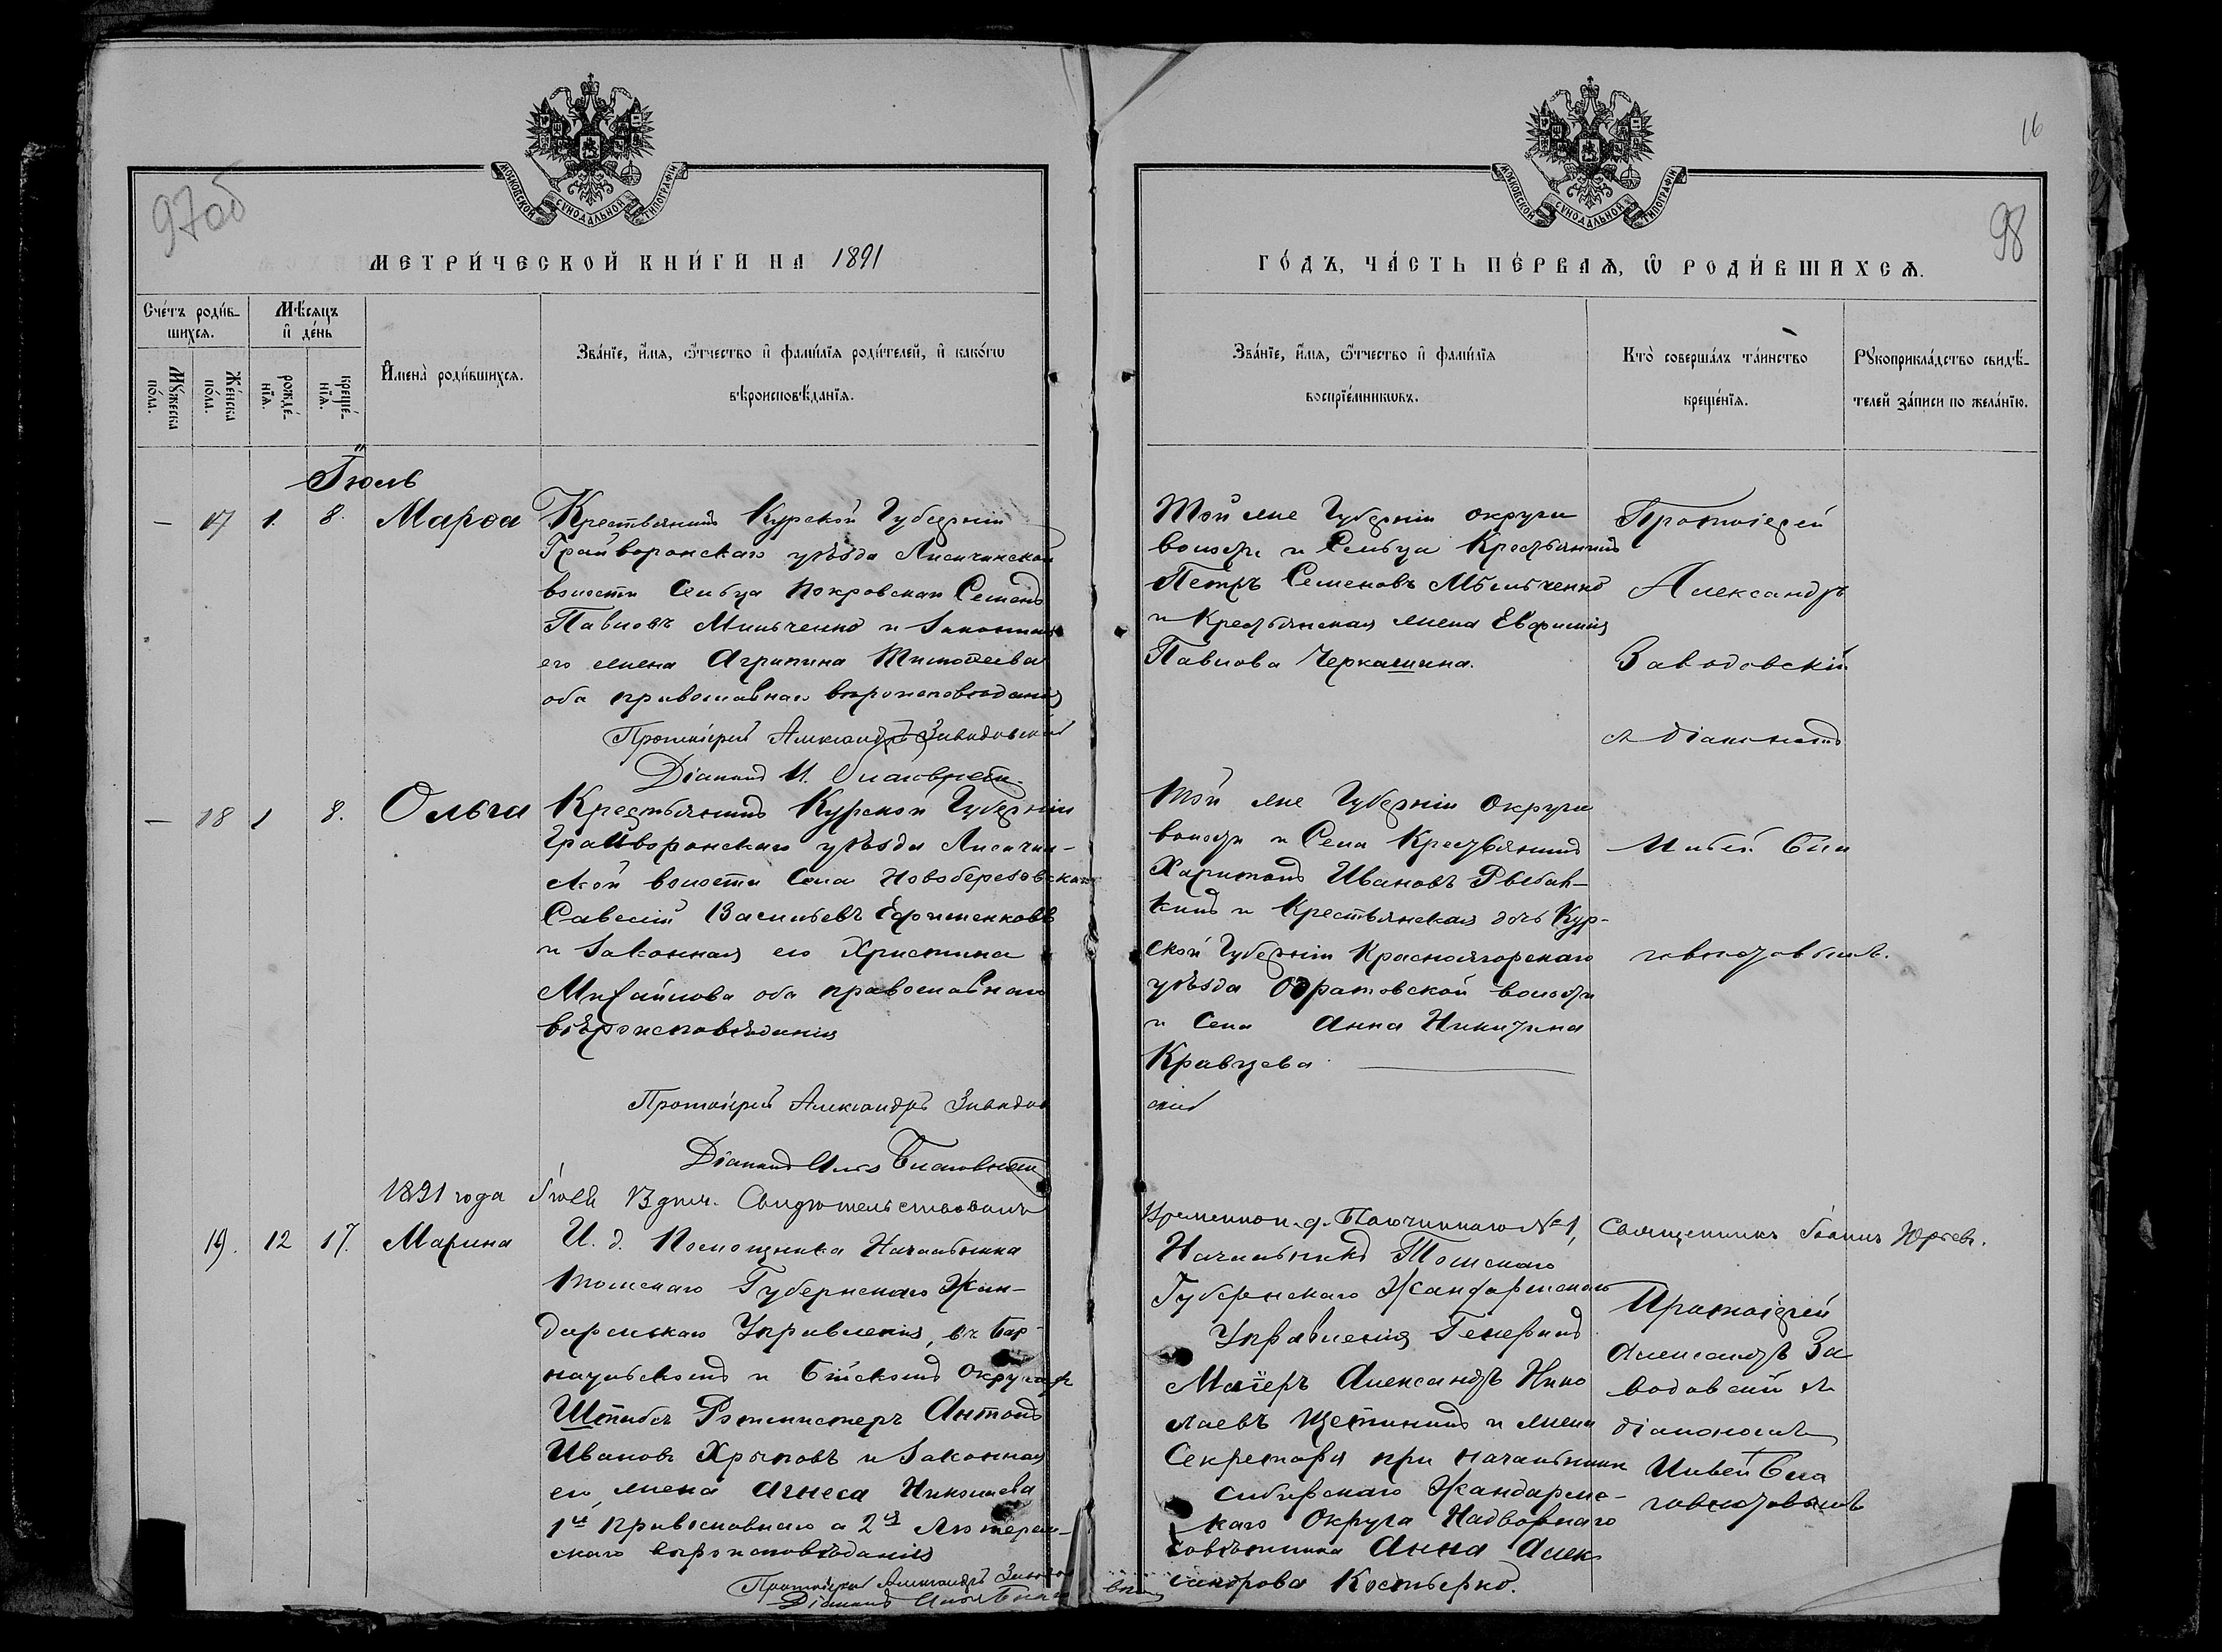 МОСКОВСКОЙ СУНОДАЛЬНОЙ ТИПОГРАФІИ
97об
МЕТРИ́ЧЕСКОЙ КНИ́ГИ НА 1891
Сче́тъ роди́в-
шихся.
Мѣ́сяцъ
и҆ де́нь
Мꙋ́жеска
по́ла.
Же́нска
по́ла.
рожде́-
нїѧ.
креще́-
нїѧ.
И҆мена̀ роди́вшихсѧ.
Зва́нїе, и҆́мѧ, ѻ҆́тчество и҆ фами́лїѧ роди́телей, и҆ како́гѡ
вѣроисповѣ́данїѧ.
Іюль
— 17 1. 8. Марѳа
Крестьянинъ Курской Губерніи
Грайворонскаго уѣзда Лисичинской
волости Сельца Покровскаго Семенъ
Павловъ Мильченко и Законная
его жена Агрипина Тимоѳеева
оба православнаго вѣроисповѣданія
Протоіерей Александръ Заводовскій
Діаконъ И. Благовѣст.
— 18 1 8. Ольга
Крестьянинъ Курской Губерніи
Грайворонскаго уѣзда Лисичин-
ской волости Села Новоберезовскаго
Савелій Васильевъ Ефименковъ
и Законная его Христина
Михайлова оба православнаго
вѣроисповѣданія
Протоіерей Александръ Заводов
Діаконъ
1891 года Іюля 13 дня. Свидѣтельствовалъ
19. 12 17. Марина
И. д. Помощника Начальника
Томскаго Губернскаго Жан-
дармскаго Управленія, въ Бар-
наульскомъ и Бійскомъ Округахъ
Штабсъ Ротмистеръ Антонъ
Ивановъ Хрыповъ и Законная
его жена Агнеса Николаева
1й православнаго а 2я Лютеран-
скаго вѣроисповѣданія
Протоіерей Александръ Заводо
Діаконъ
МОСКОВСКОЙ СУНОДАЛЬНОЙ ТИПОГРАФІИ
16
98
ГО́ДЪ, ЧА́СТЬ ПЕ́РВАѦ, Ѡ҆ РОДИ́ВШИХСѦ.
Зва́нїе, и҆́мѧ, ѻ҆́тчество и҆ фами́лїѧ
воспрїе́мникѡвъ.
Кто̀ соверша́лъ та́инство
креще́нїѧ.
Рꙋкоприкла́дство свидѣ́-
телей за́писи по жела́нїю.
Той же Губерніи округи
волости и Сельца Крестьянинъ
Петръ Семеновъ Мѣльченко
и Крестьянская жена Евфимія
Павлова Черкашина.
Протоіерей
Александръ
Заводовскій
съ діакономъ
Той же Губерніи Округи
волости и Села Крестьянинъ
Харитонъ Ивановъ Рыбал-
кинъ и Крестьянская дочь Кур-
ской Губерніи Краснояторскаго
уѣзда волости
и Села Анна Никитина
Кравцева
скій
Ильей Бла
говѣстовымъ.
Временно и. д. №1,
Начальникъ Томскаго
Губернскаго Жандармскаго
Управленія Генералъ
Маіеръ Александръ Нико
лаевъ Щетининъ и жена
Секретаря при Начальникѣ
Сибирскаго Жандармс-
каго Округа Надворнаго
совѣтника Анна Алек
сандрова Костырко.
Священникъ Іоаннъ Юрьевъ.
Протоіерей
Александръ За
водовскій съ
діакономъ
Ильей Бла
говѣстовымъ